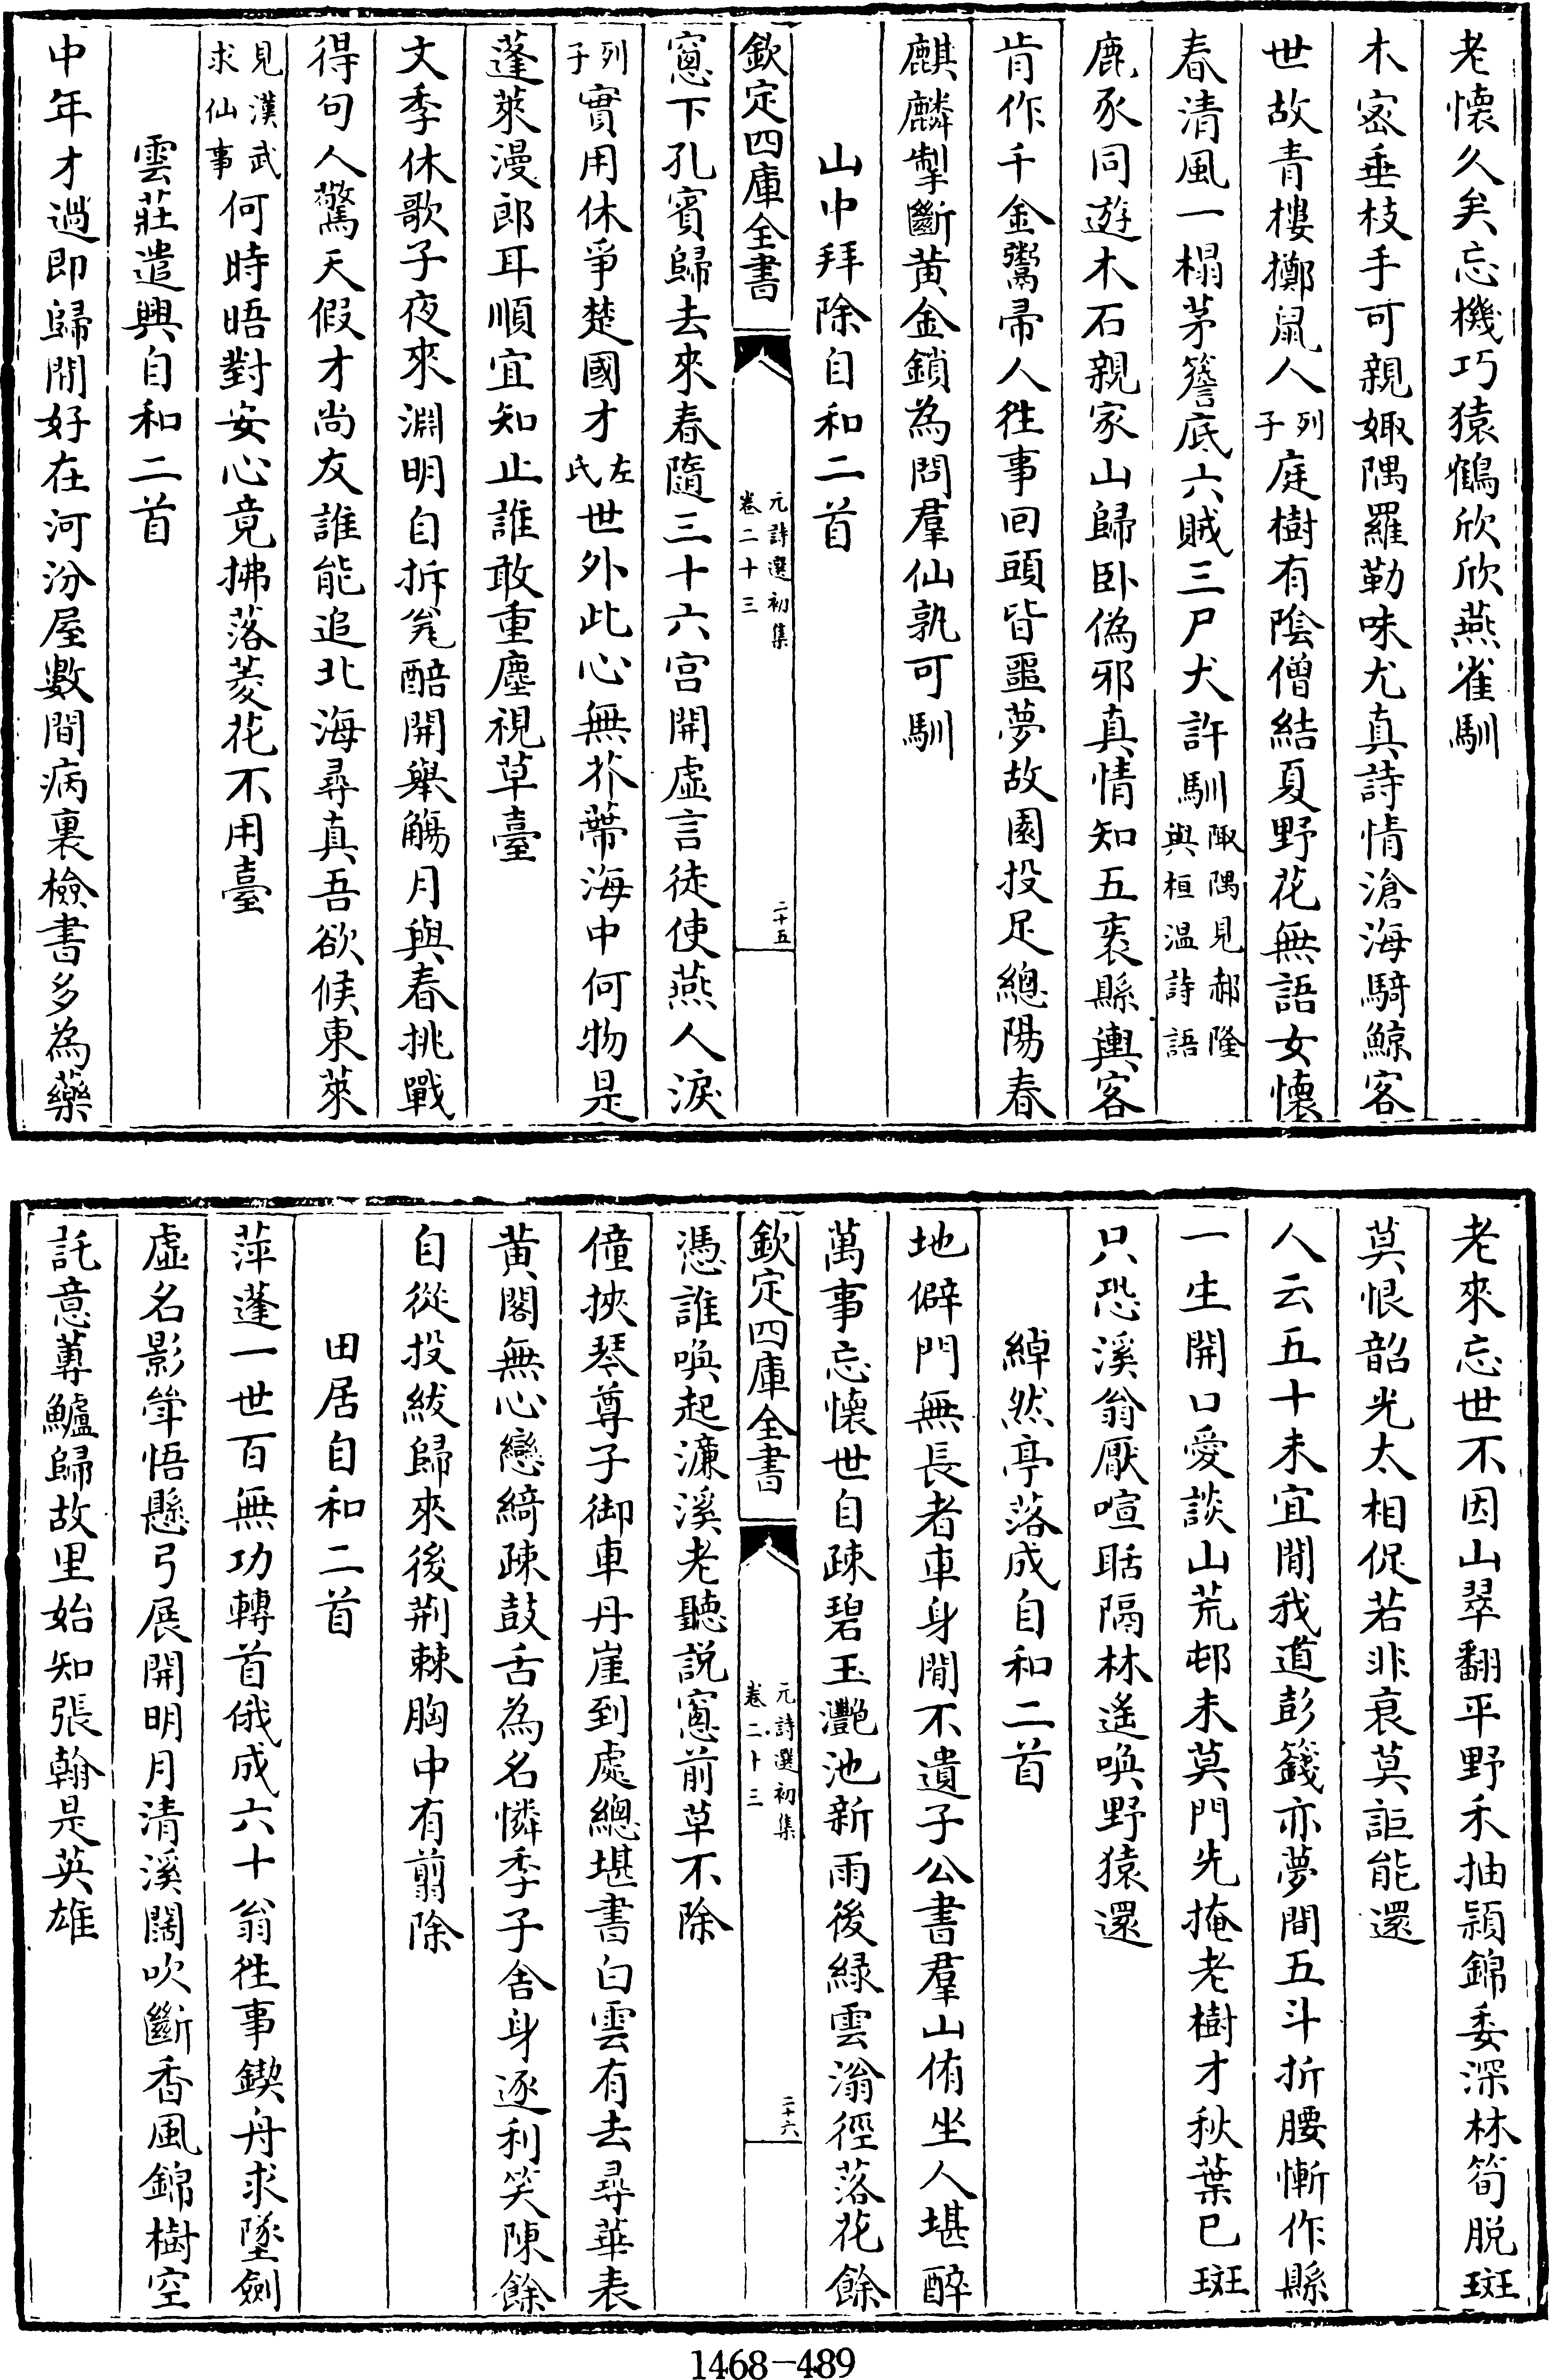 老懷久矣忘機巧猿鶴欣欣燕雀馴
木宻垂枝手可親娵隅羅勒味尤真詩情滄海騎鯨客
世故青樓擲鼠人列子庭樹有陰僧結夏野花無語女懷
春清風一榻茅簷底六賊三尸犬許馴陬隅見郝隆與桓温詩語
鹿豕同遊木石親家山歸卧偽邪真情知五袠縣輿客
肯作千金鬻帚人徃事回頭皆噩夢故園投足總陽春
麒麟掣斷黄金鎖為問羣仙孰可馴
山中拜除自和二首
欽定四庫全書
元詩選初集
卷二十三
二十五
窻下孔賓歸去來春隨三十六宫開虚言徒使燕人淚
列子實用休爭楚國才左氏世外此心無芥蔕海中何物是
蓬萊漫郎耳順宜知止誰敢重塵視草臺
文季休歌子夜來淵明自拆甕醅開舉觴月與春挑戰
得句人驚天假才尚友誰能追北海尋真吾欲候東萊
見漢武求仙事何時晤對安心竟拂落菱花不用臺
雲莊遣興自和二首
中年才過即歸閒好在河汾屋數間病裏檢書多為藥
老來忘世不因山翠翻平野禾抽穎錦委深林筍脱斑
莫恨韶光太相促若非衰莫詎能還
人云五十未宜閒我道彭籛亦夢間五斗折腰慚作縣
一生開口愛談山荒邨未莫門先掩老樹才秋葉已斑
只恐溪翁厭喧聒隔林遙喚野猿還
綽然亭落成自和二首
地僻門無長者車身閒不遺子公書羣山侑坐人堪醉
萬事忘懷世自疎碧玉灔池新雨後緑雲滃徑落花餘
欽定四庫全書
元詩選初集
卷二十三
二十六
憑誰喚起濂溪老聽説窻前草不除
僮挾琴尊子御車丹崖到處總堪書白雲有去尋華表
黄閣無心戀綺疎鼓舌為名憐季子舍身逐利笑陳餘
自從投紱歸來後荆棘胸中有翦除
田居自和二首
萍蓬一世百無功轉首俄成六十翁徃事鍥舟求墜劍
虚名影眚悟懸弓展開明月清溪闊吹斷香風錦樹空
託意蓴鱸歸故里始知張翰是英雄
1468-489